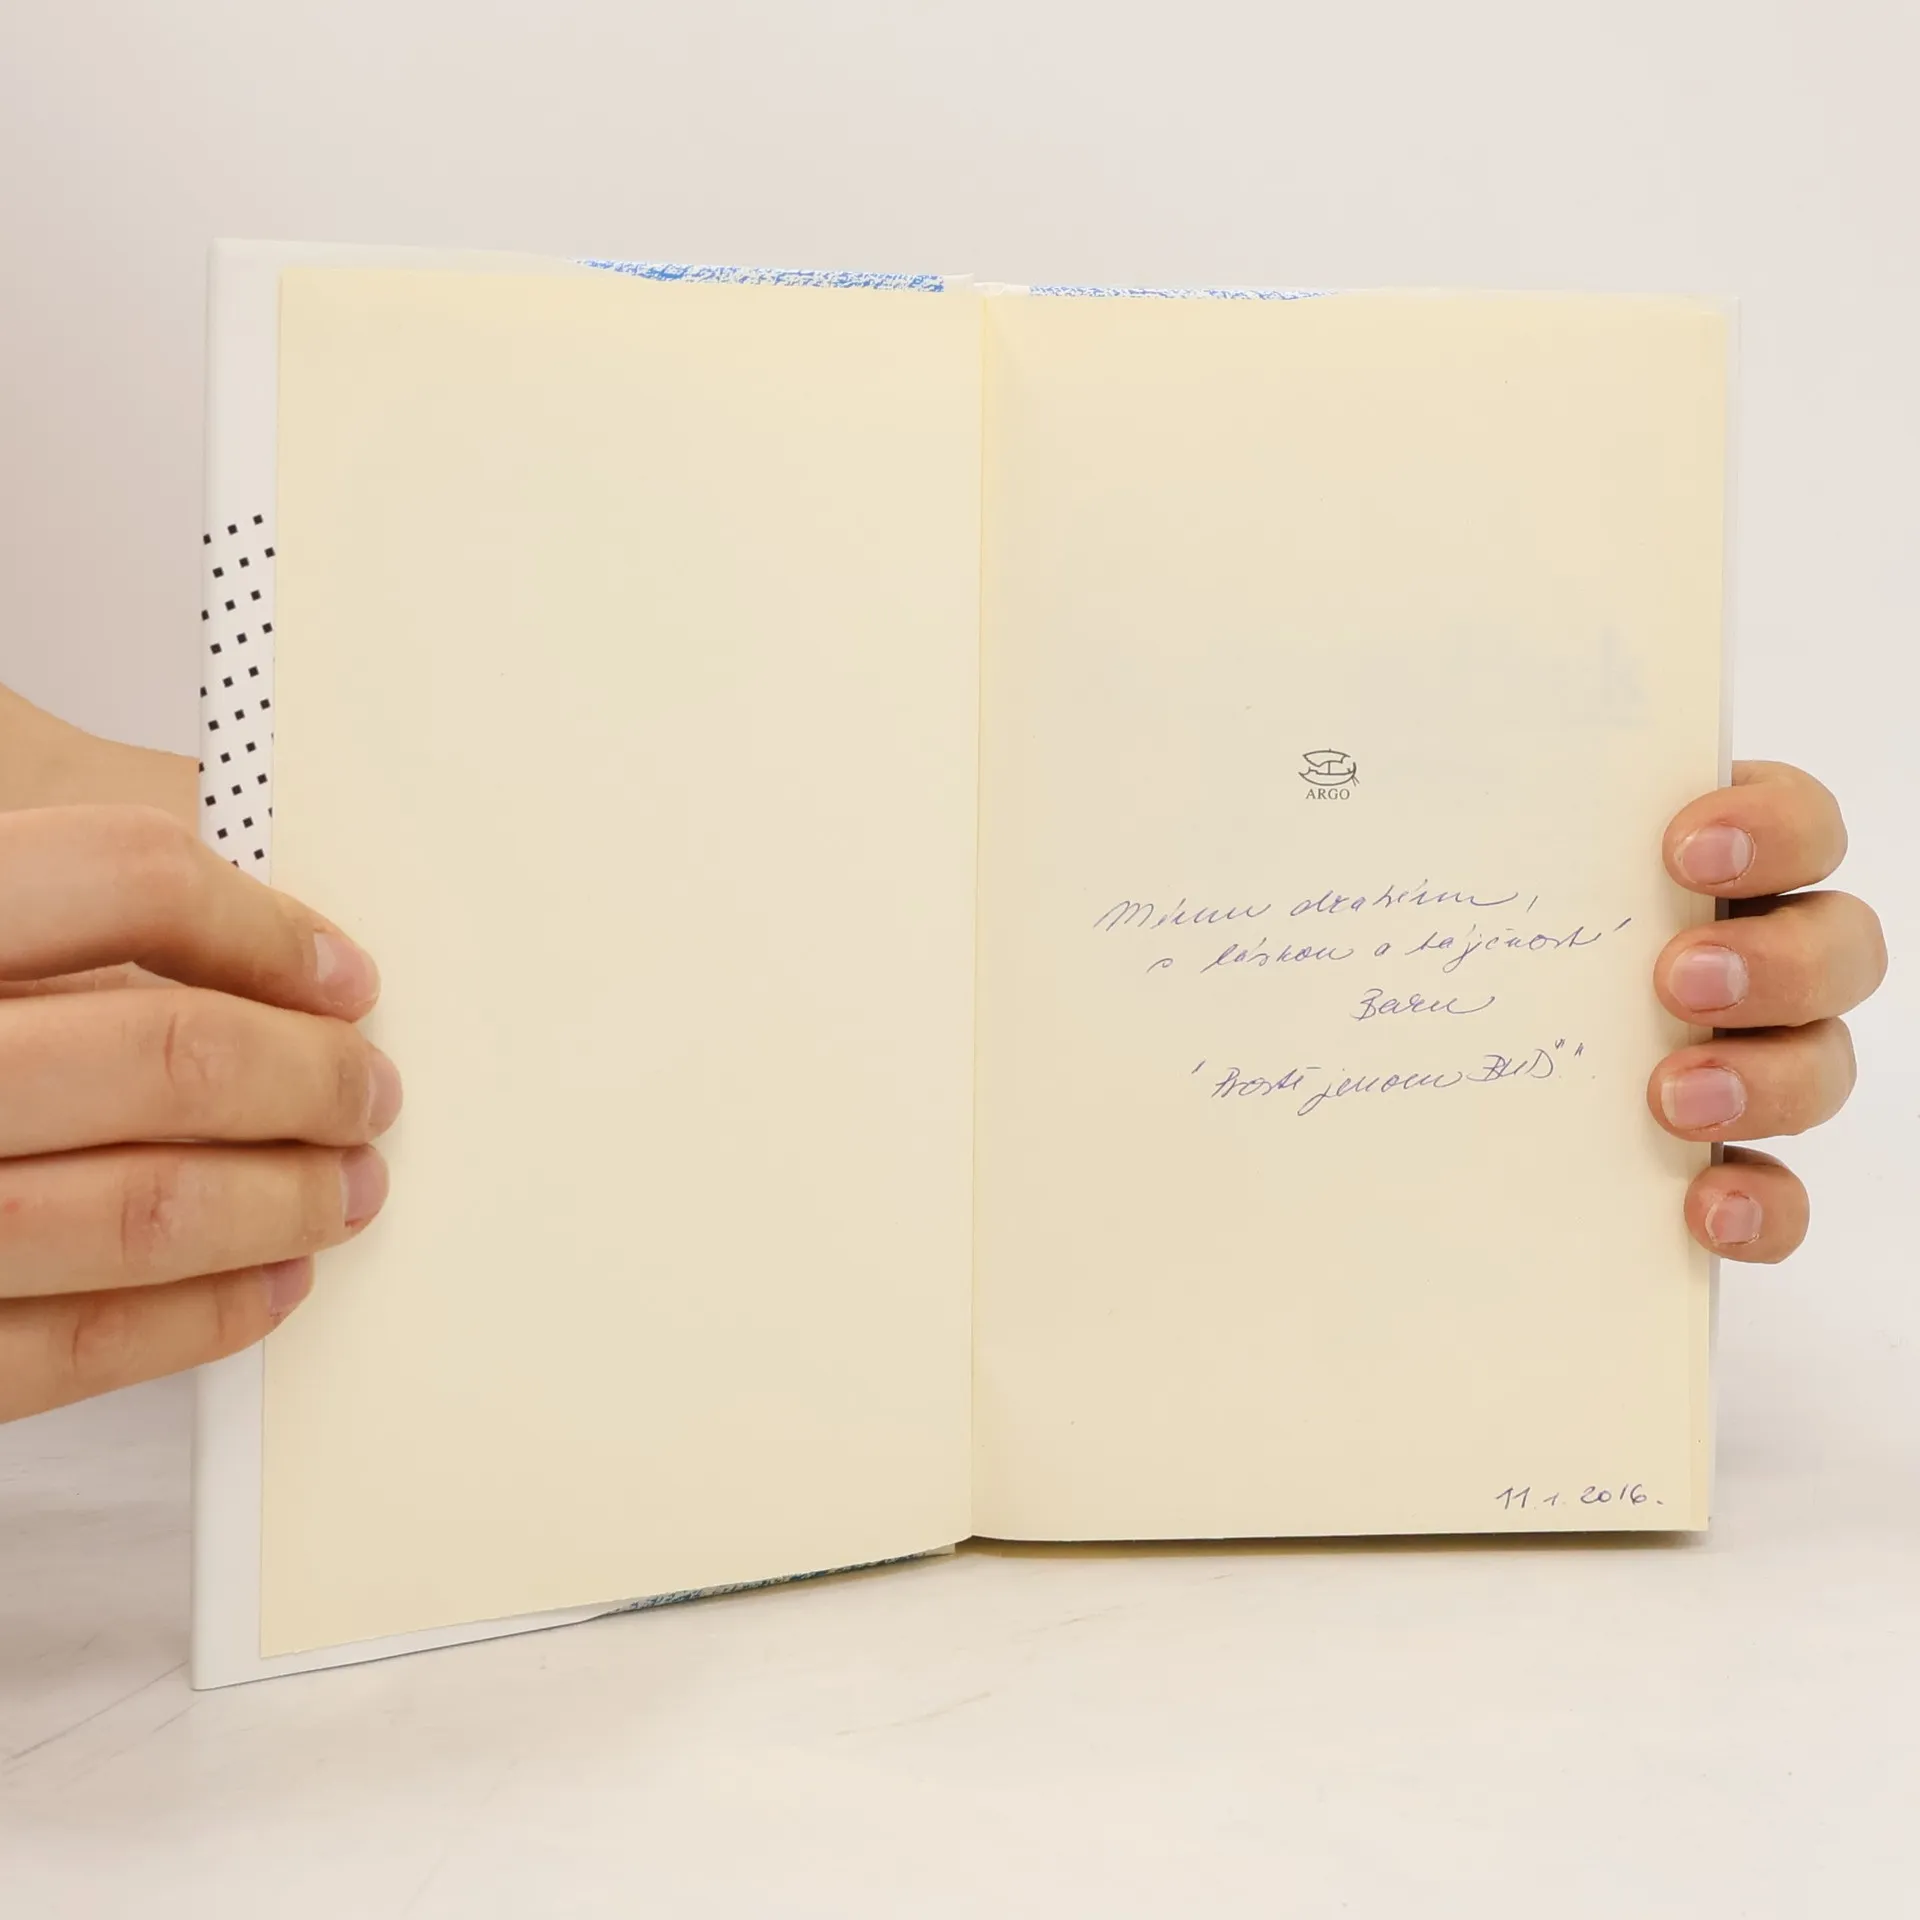 ARGO
Mému drahému,
s láskou a báječností
Baru
"Prostě jenom BUĎ".
11.1.2016.